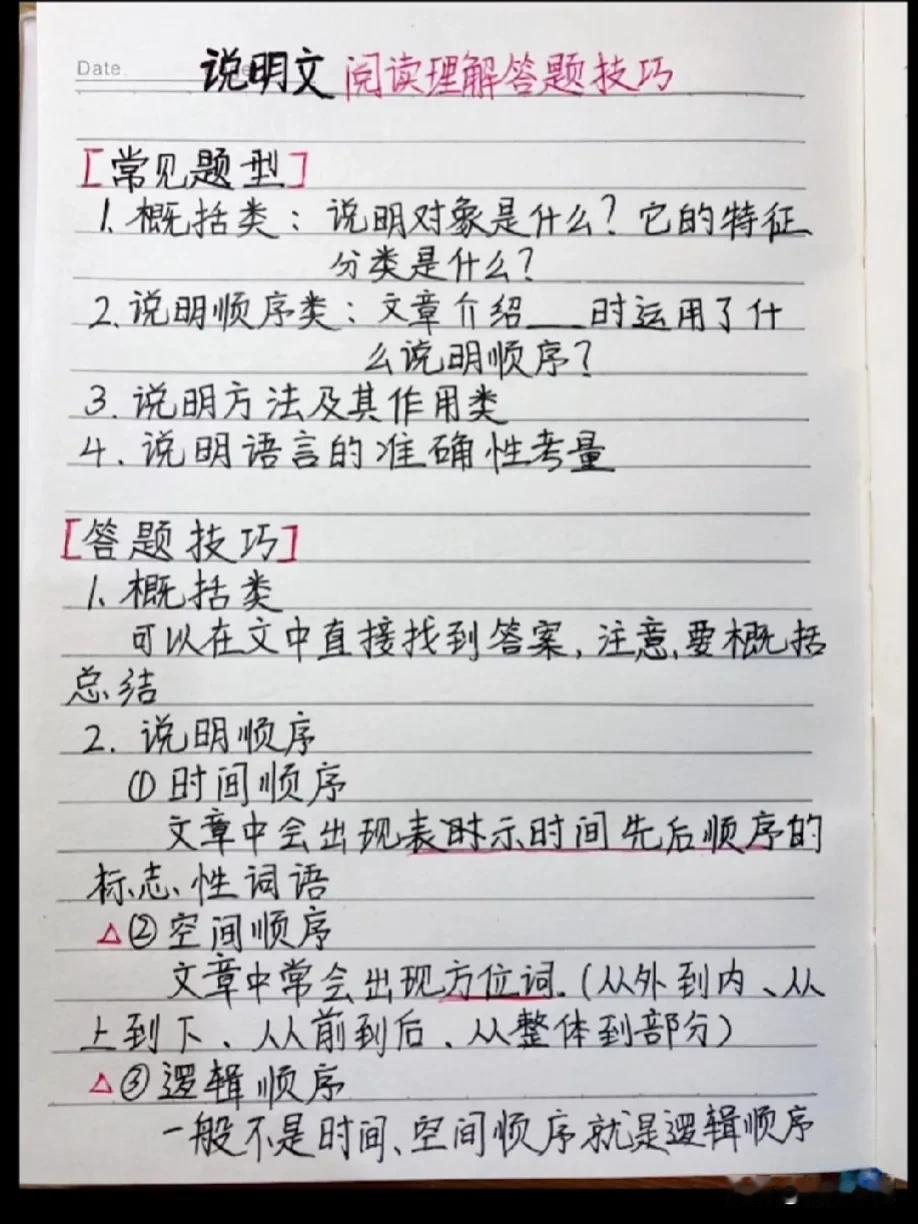 Date.
说明文阅读理解答题技巧
[常见题型]
1. 概括类：说明对象是什么？它的特征
分类是什么？
2. 说明顺序类：文章介绍___时运用了什
么说明顺序？
3. 说明方法及其作用类
4. 说明语言的准确性考量
[答题技巧]
1. 概括类
可以在文中直接找到答案，注意要概括
总结
2. 说明顺序
①时间顺序
文章中会出现表时示时间先后顺序的
标志性词语
△②空间顺序
文章中常会出现方位词.（从外到内、从
上到下、从前到后、从整体到部分）
△③逻辑顺序
一般不是时间、空间顺序就是逻辑顺序